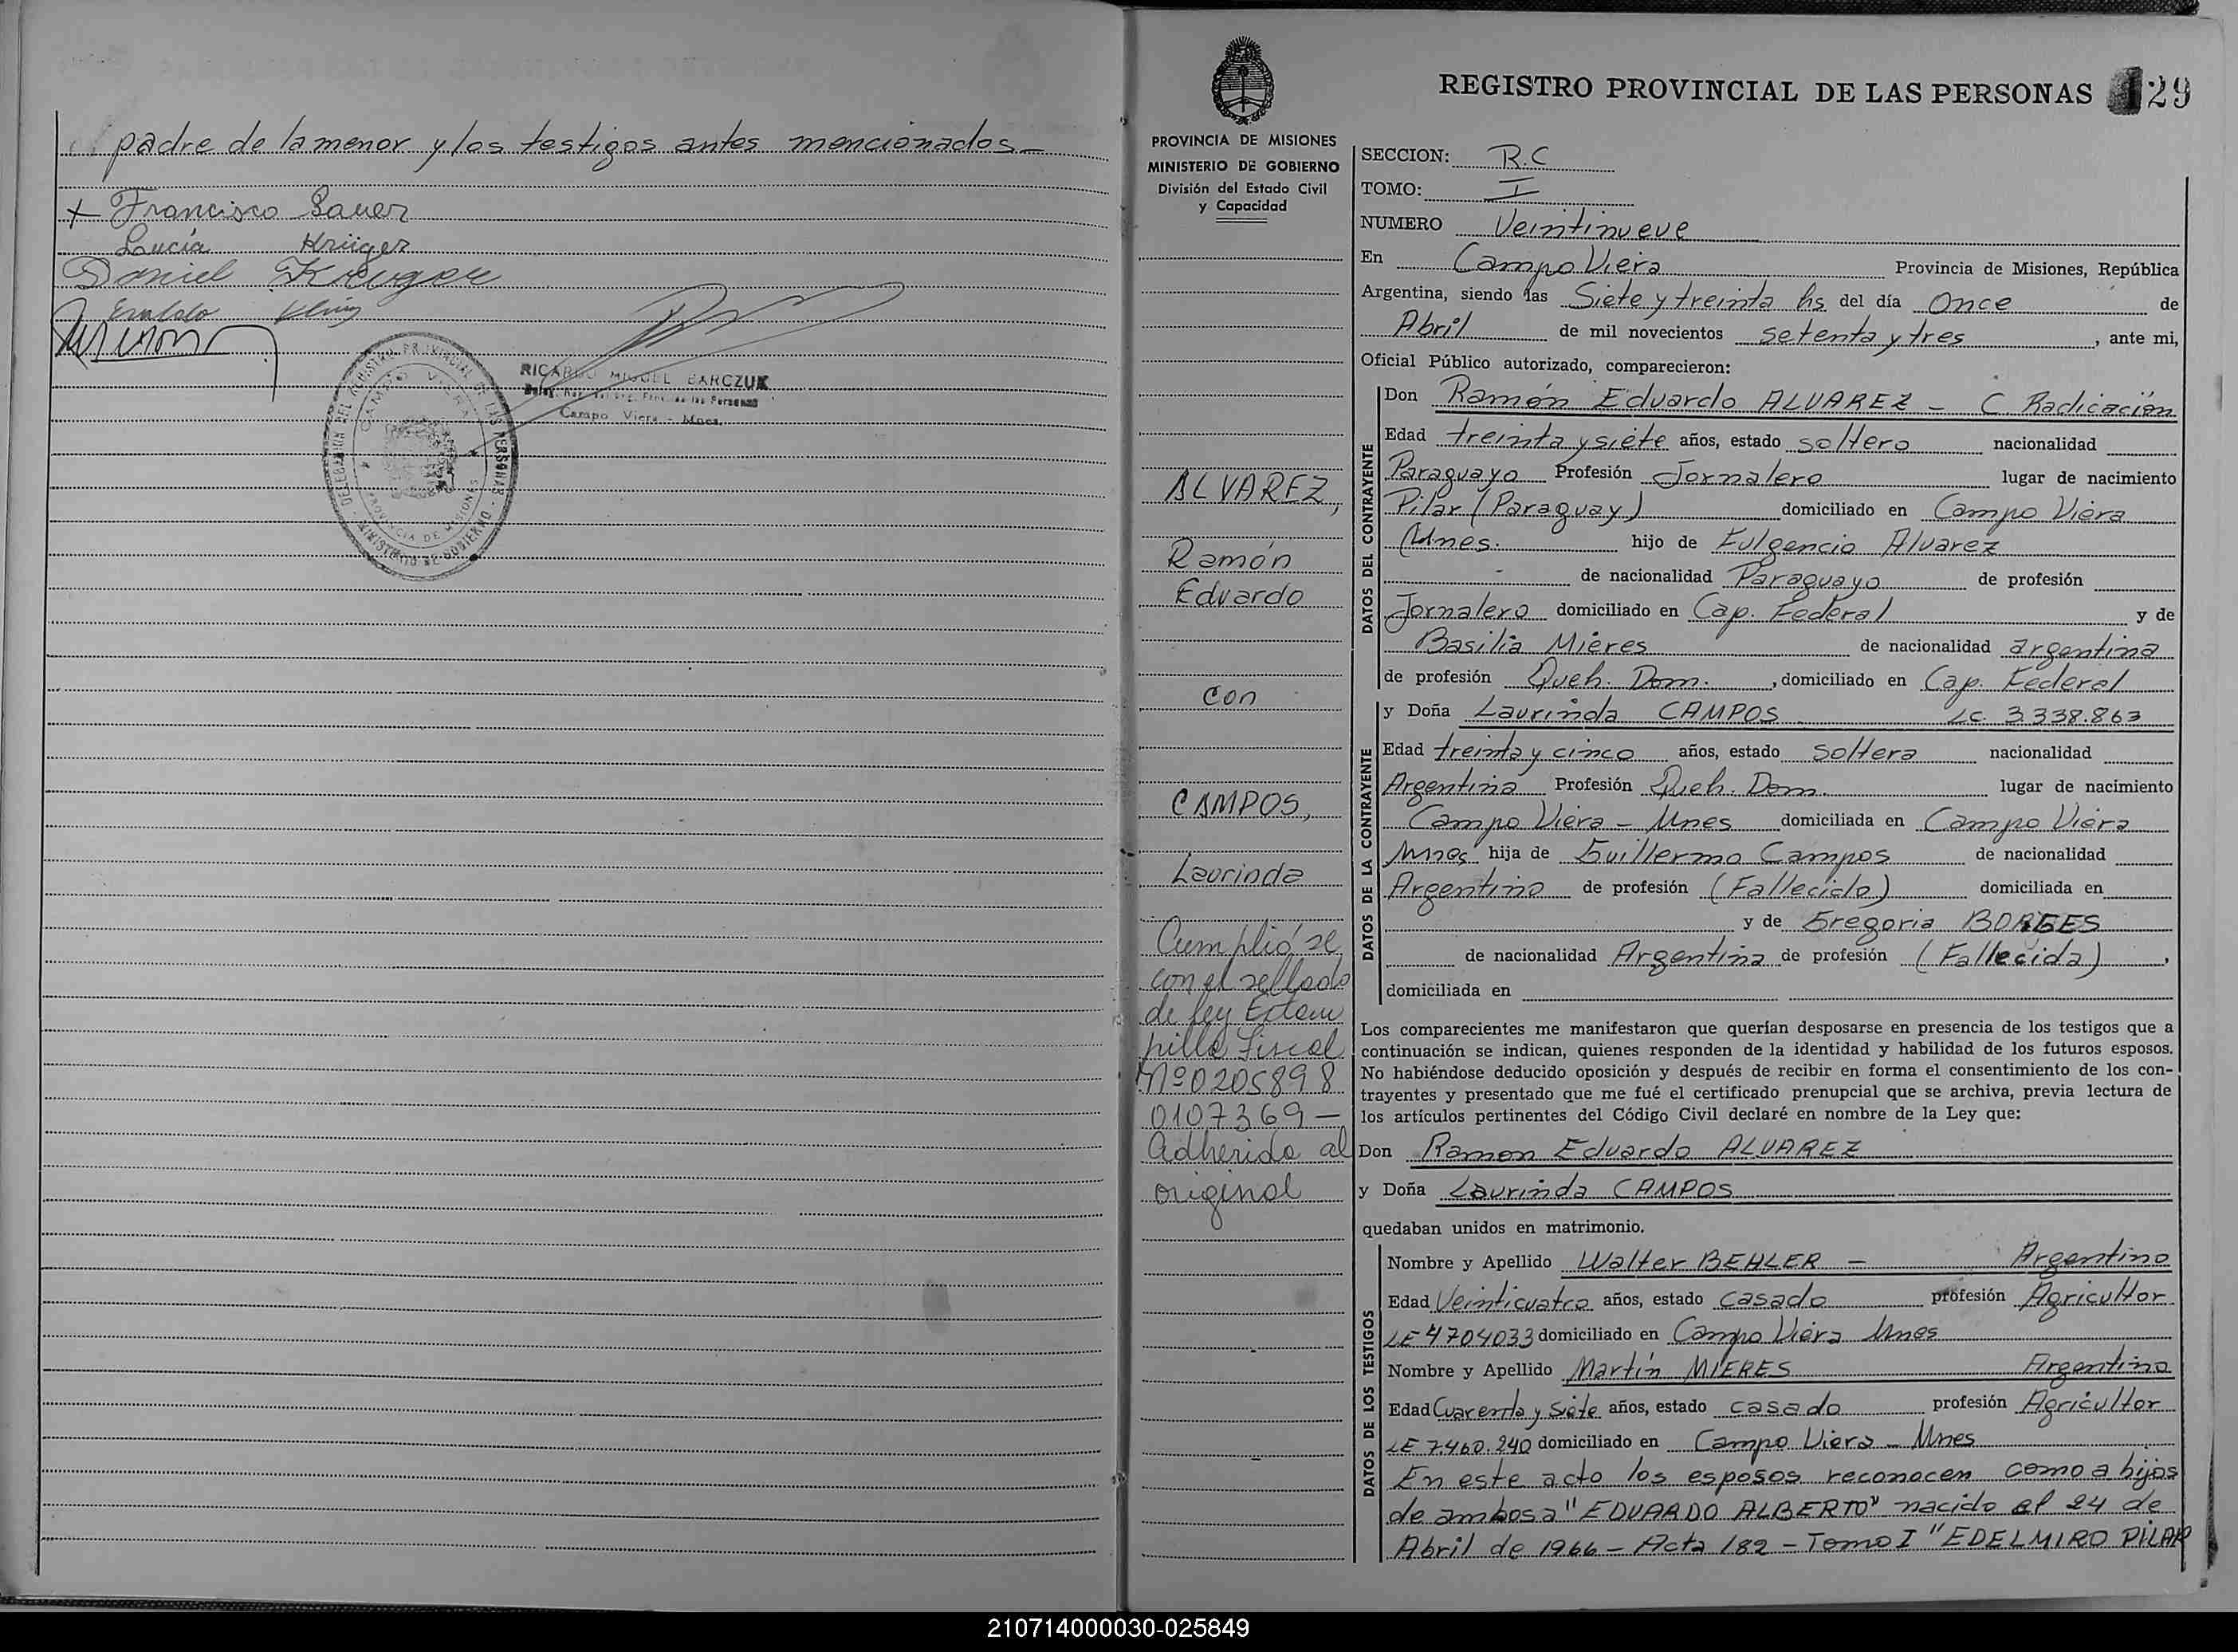 padre de la menor y los testigos antes mencionados_
+ Francisco Sauer
Lucía Krüger
Daniel Krüger
RICARDO MIGUEL BARCZUK
Campo Viera - Mnes.
DELEGACION DEL REGISTRO PROVINCIAL DE LAS PERSONAS
CAMPO VIERA
PROVINCIA DE MISIONES
MINISTERIO DE GOBIERNO
PROVINCIA DE MISIONES
MINISTERIO DE GOBIERNO
División del Estado Civil
y Capacidad
ALVAREZ,
Ramón
Eduardo
con
CAMPOS,
Laurinda
Cumplió se
con el sellado
de ley Estam
pilla fiscal
Nº 0205898
0107369 —
Adherida al
original
REGISTRO PROVINCIAL DE LAS PERSONAS 29
SECCION: R.C
TOMO: I
NUMERO Veintinueve
En Campo Viera Provincia de Misiones, República
Argentina, siendo las Siete y treinta hs del día Once de
Abril de mil novecientos setenta y tres, ante mi,
Oficial Público autorizado, comparecieron:
DATOS DEL CONTRAYENTE
Don Ramón Eduardo ALVAREZ - C. Radicación
Edad treinta y siete años, estado soltero nacionalidad
Paraguayo Profesión Jornalero lugar de nacimiento
Pilar (Paraguay) domiciliado en Campo Viera
Mnes. hijo de Fulgencio Alvarez
de nacionalidad Paraguayo de profesión
Jornalero domiciliado en Cap. Federal y de
Basilia Mieres de nacionalidad argentina
de profesión Queh. Dom., domiciliado en Cap. Federal
DATOS DE LA CONTRAYENTE
y Doña Laurinda CAMPOS LC. 3.338.863
Edad treinta y cinco años, estado soltera nacionalidad
Argentina Profesión Queh. Dom. lugar de nacimiento
Campo Viera - Mnes domiciliada en Campo Viera
Mnes hija de Guillermo Campos de nacionalidad
Argentino de profesión (Fallecido) domiciliada en
y de Gregoria BORGES
de nacionalidad Argentina de profesión (Fallecida),
domiciliada en
Los comparecientes me manifestaron que querían desposarse en presencia de los testigos que a
continuación se indican, quienes responden de la identidad y habilidad de los futuros esposos.
No habiéndose deducido oposición y después de recibir en forma el consentimiento de los con-
trayentes y presentado que me fué el certificado prenupcial que se archiva, previa lectura de
los artículos pertinentes del Código Civil declaré en nombre de la Ley que:
Don Ramon Eduardo ALVAREZ
y Doña Laurinda CAMPOS
quedaban unidos en matrimonio.
DATOS DE LOS TESTIGOS
Nombre y Apellido Walter BEHLER - Argentino
Edad Veinticuatro años, estado casado profesión Agricultor
LE 4704033 domiciliado en Campo Viera Mnes
Nombre y Apellido Martín MIERES Argentino
Edad Cuarenta y Siete años, estado casado profesión Agricultor
LE 7.460.240 domiciliado en Campo Viera - Mnes
En este acto los esposos reconocen como a hijos
de ambos a "EDUARDO ALBERTO" nacido el 24 de
Abril de 1966 - Acta 182 - Tomo I "EDELMIRO PILAR
210714000030-025849